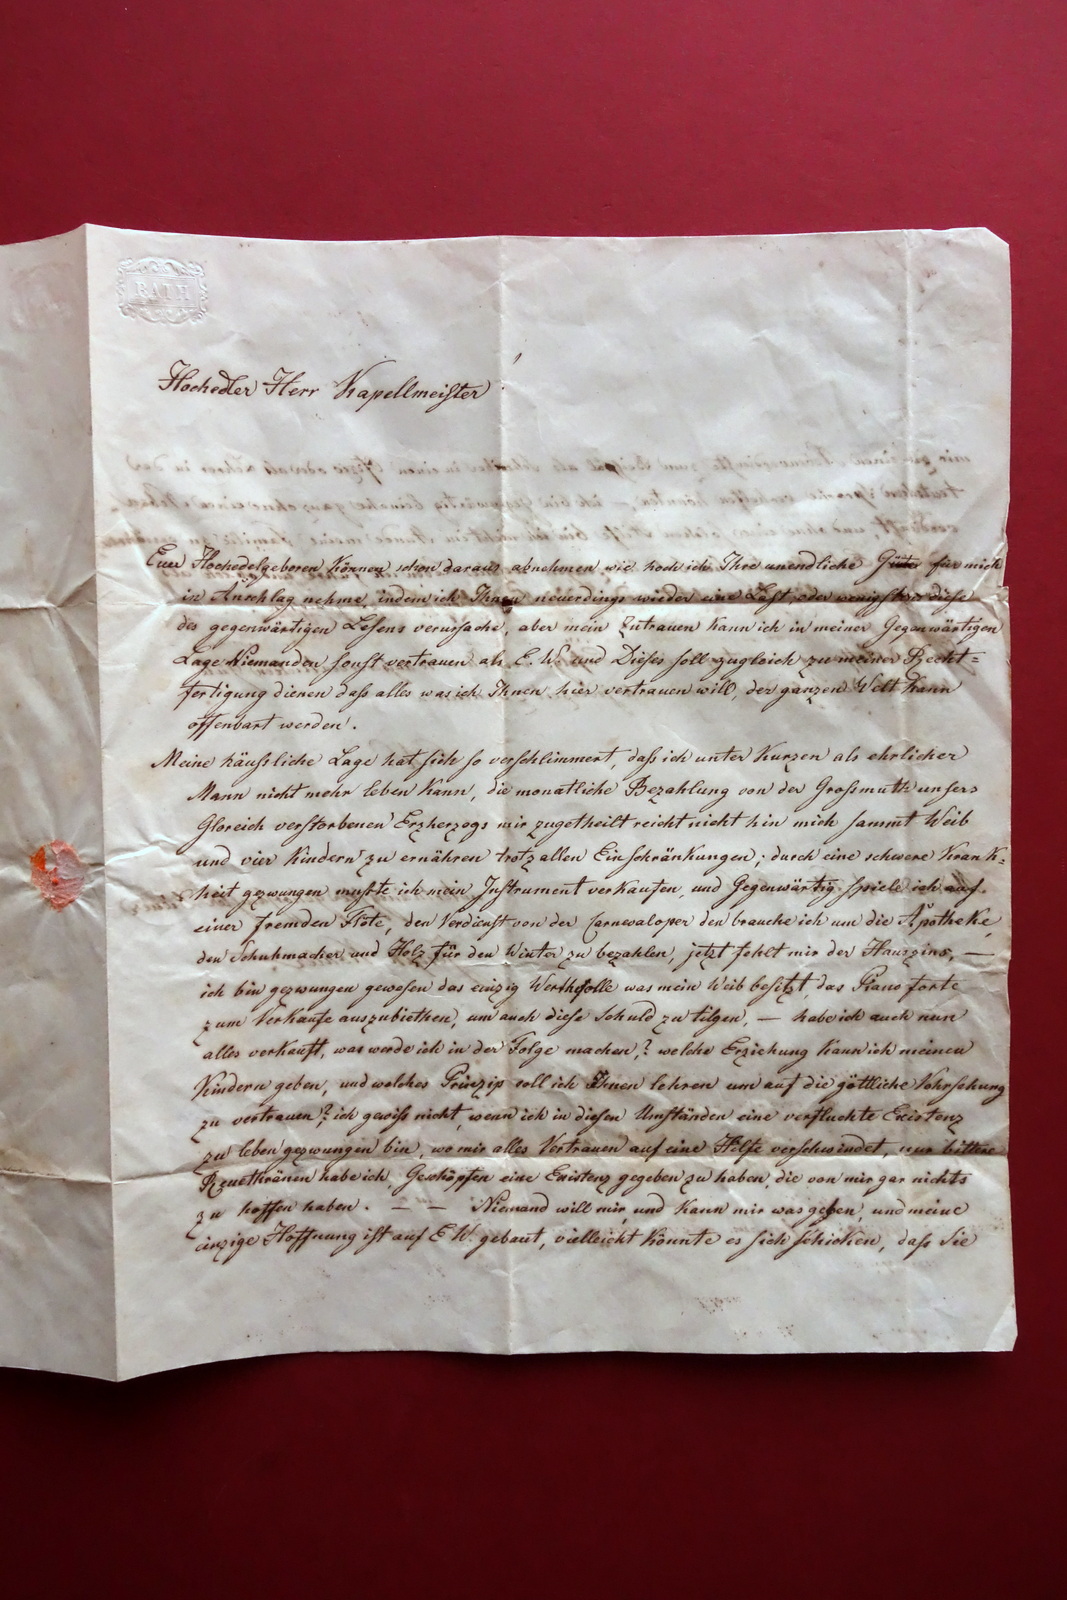 BATH
Hochedler Herr Kapellmeister!
Euer Hochedelgeboren können schon daraus abnehmen wie hoch ich Ihre unendliche Güte für mich
in Anschlag nehme, indem ich Ihnen neuerdings wieder eine Last, oder wenigstens diese
des gegenwärtigen Lesens verursache, aber mein Zutrauen kann ich in meiner Gegenwärtigen
Lage Niemanden sonst vertrauen als E. W. und Dieses soll zugleich zu meiner Recht=
fertigung dienen daß alles was ich Ihnen hier vertrauen will, der ganzen Welt kann
offenbart werden.
Meine häußliche Lage hat sich so verschlimmert, daß ich unter Kurzen als ehrlicher
Mann nicht mehr leben kann, die monatliche Bezahlung von der Großmuth unsers
Gloreich verstorbenen Erzherzogs mir zugetheilt reicht nicht hin mich sammt Weib
und vier Kindern zu ernähren trotz allen Einschränkungen; durch eine schwere Krank=
heit gezwungen mußte ich mein Instrument verkaufen, und Gegenwärtig spiele ich auf
einer fremden Flöte, den Verdienst von der Carnevaloper den brauche ich um die Apotheke
den Schuhmacher und Holz für den Winter zu bezahlen, jetzt fehlt mir der Hauszins, —
ich bin gezwungen gewesen das einzig Werthvolle was mein Weib besitzt, das Piano forte
zum Verkaufe auszubiethen, um auch diese Schuld zu tilgen, — habe ich auch nun
alles verkauft, was werde ich in der Folge machen,? welche Erziehung kann ich meinen
Kindern geben, und welches Prinzip soll ich Ihnen lehren um auf die göttliche Vohrsehung
zu vertrauen? ich gewiß nicht, wenn ich in diesen Umständen eine verfluchte Existenz
zu leben gezwungen bin, wo mir alles Vertrauen auf eine Hilfe verschwindet, nur bittere
Reuethränen habe ich, Geschöpfen eine Existenz gegeben zu haben, die von mir gar nichts
zu hoffen haben. — — Niemand will mir, und kann mir was geben, und meine
einzige Hoffnung ist auf E W. gebaut, vielleicht könnte es sich schicken, daß Sie